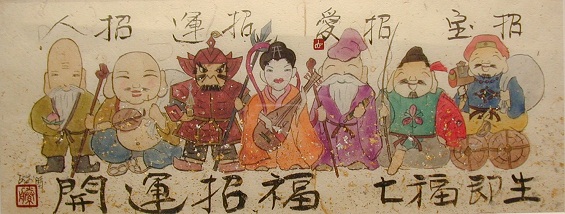 招宝 招愛 招運 招人
開運招福 七福即生